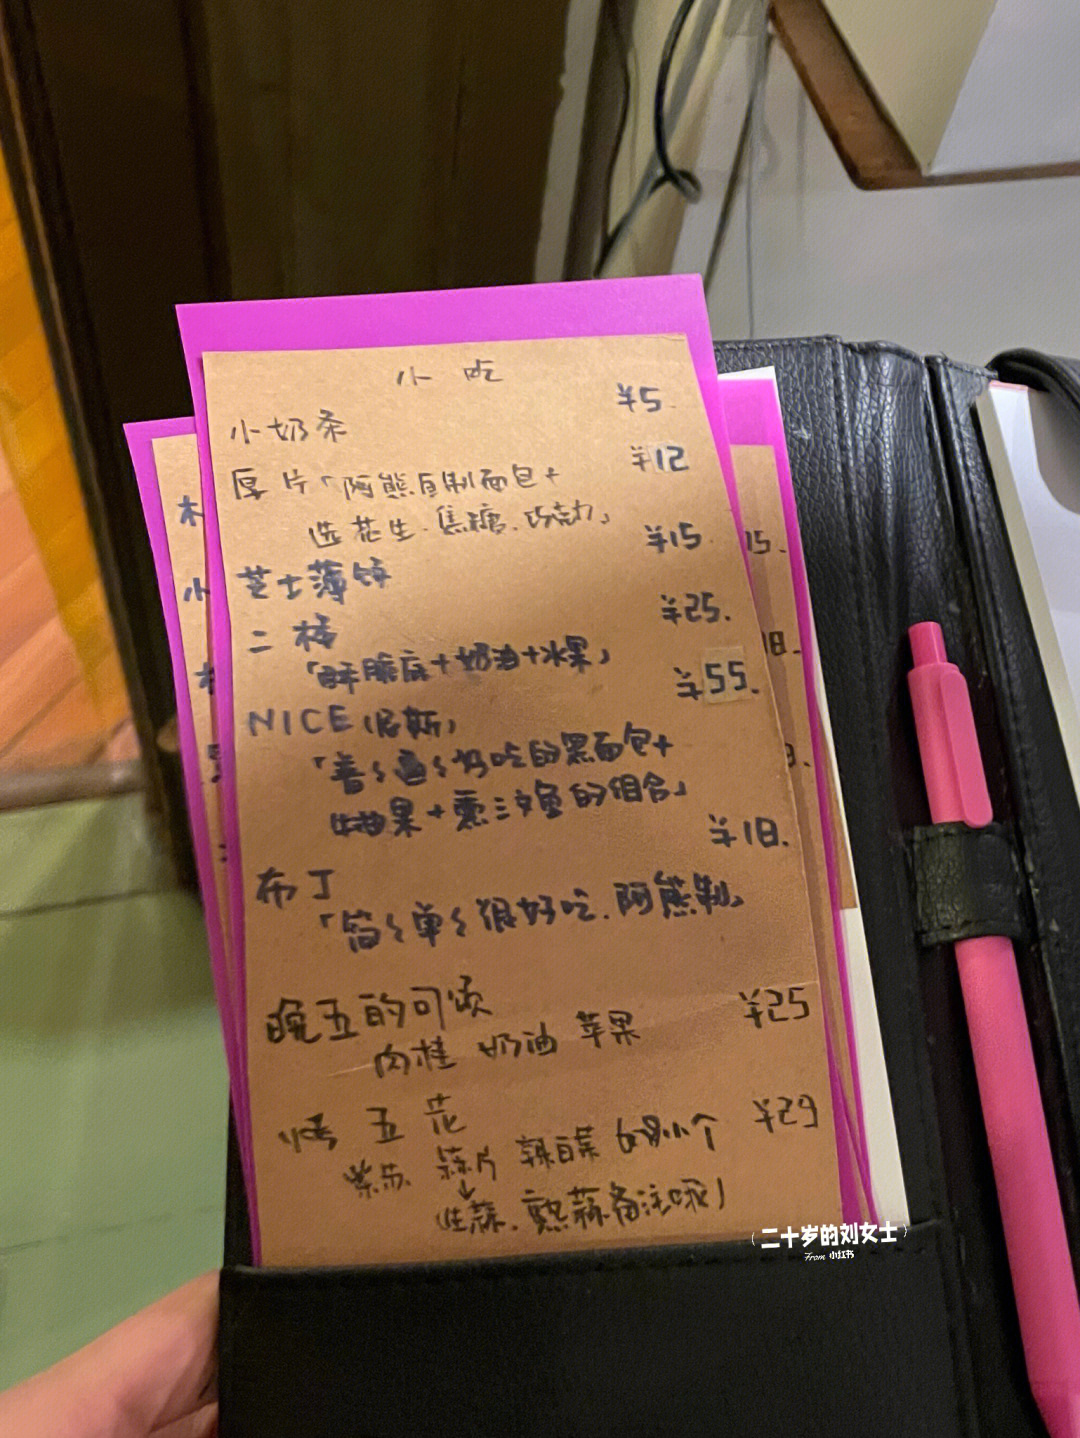 小吃
小奶条 ¥5.
厚片「阿熊自制面包+ ¥12
选花生.焦糖.巧克力」
芝士薄饼 ¥15.
二楼 ¥25.
「酥脆底+奶油+水果」
NICE(尼斯) ¥55.
「普々通々好吃的黑面包+
牛油果+熏三文鱼的组合」
布丁 ¥18.
「简々单々很好吃.阿熊制」
晚五的可颂 ¥25
肉桂 奶油 苹果
烤五花 ¥29
紫苏 蒜片 辣白菜 6小个
(生蒜.熟蒜备注哦)
木
小
15.
18.
二十岁的刘女士
From 小红书